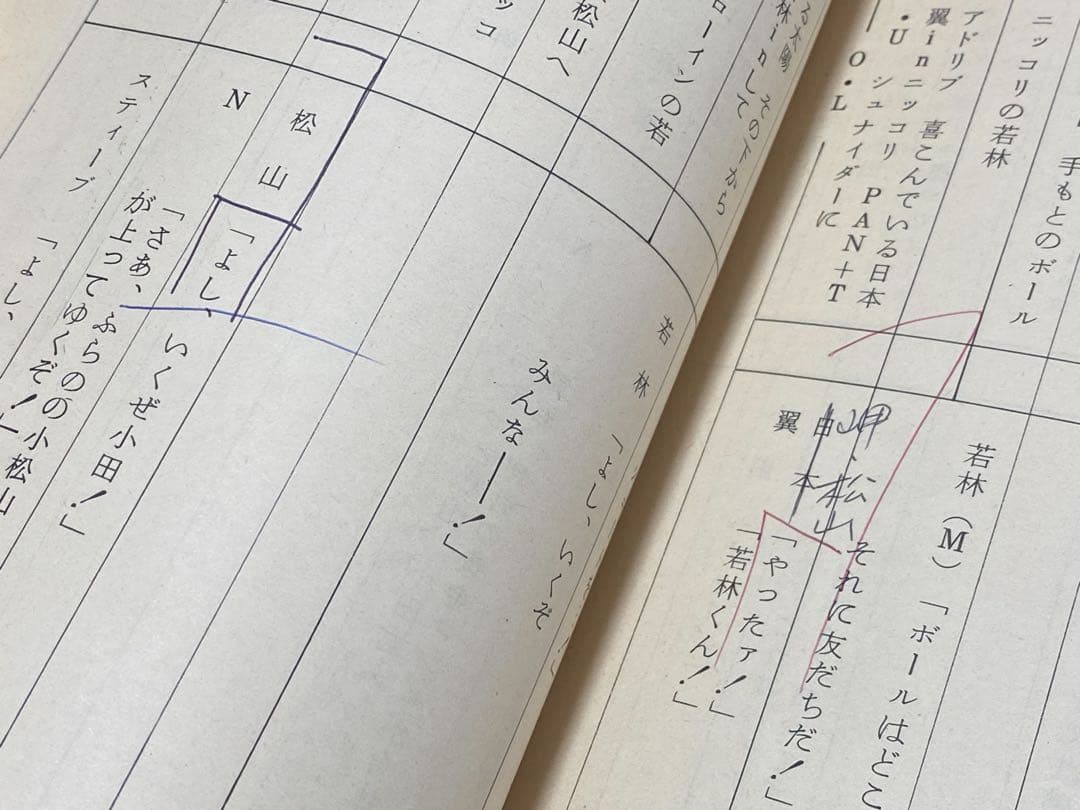 ニッコリの若林
手もとのボール
アドリブ 喜こんでいる日本
翼in ニッコリ PAN+T
・U シュナイダーに
O・L
若林（M）「ボールはどこ
それに友だちだ！」
岬、松山
日本「やったァ！」
翼「若林くん！」
その下から
林inして
ローインの若
松山へ
ッコ
若林「よし、いくぞ
みんなー！」
松山「よし、いくぜ小田！」
N「さあ、ふらのの小松山
が上ってゆくぞ！」
スティーブ「よし、